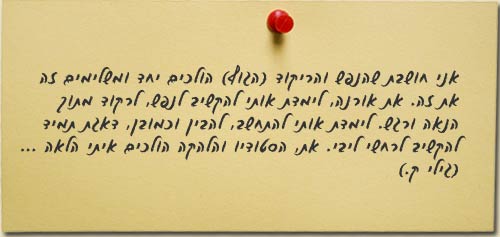 אני חושבת שהנפש והריקוד (הגוף) הולכים יחד ומשלימים זה
את זה. את אורנה, לימדת אותי להקשיב לנפש, לרקוד מתוך
הנאה ורגש. לימדת אותי להתחשב, להבין וכמובן, דאגת תמיד
להקשיב לרחשי ליבי. את, הסטודיו והלהקה הולכים איתי הלאה ...
(גילי ק.)